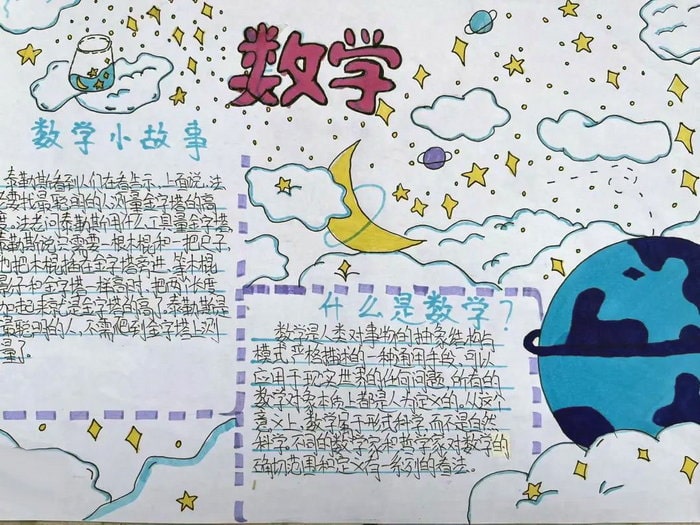 数学
数学小故事
泰勒斯看到人们在看告示,上面说,法
老要找最聪明的人测量金字塔的高
度。法老问泰勒斯用什么工具量金字塔,
泰勒斯说只需要一根木棍和一把尺子,
他把木棍插在金字塔旁边,等木棍
影子和
金字塔
一样高时,把两个长度
加起来就是金字塔的高了,泰勒斯是
最聪明的人,不需爬到金字塔上测
量了。
什么是数学?
数学是人类对事物的抽象结构与
模式严格描述的一种通用手段,可以
应用于现实世界的任何问题,所有的
数学对象本质上都是人为定义的。从这个
意义上,数学属于形式科学,而不是自然
科学,不同的数学家和哲学家对数学的
确切范围和定义有一系列的看法。